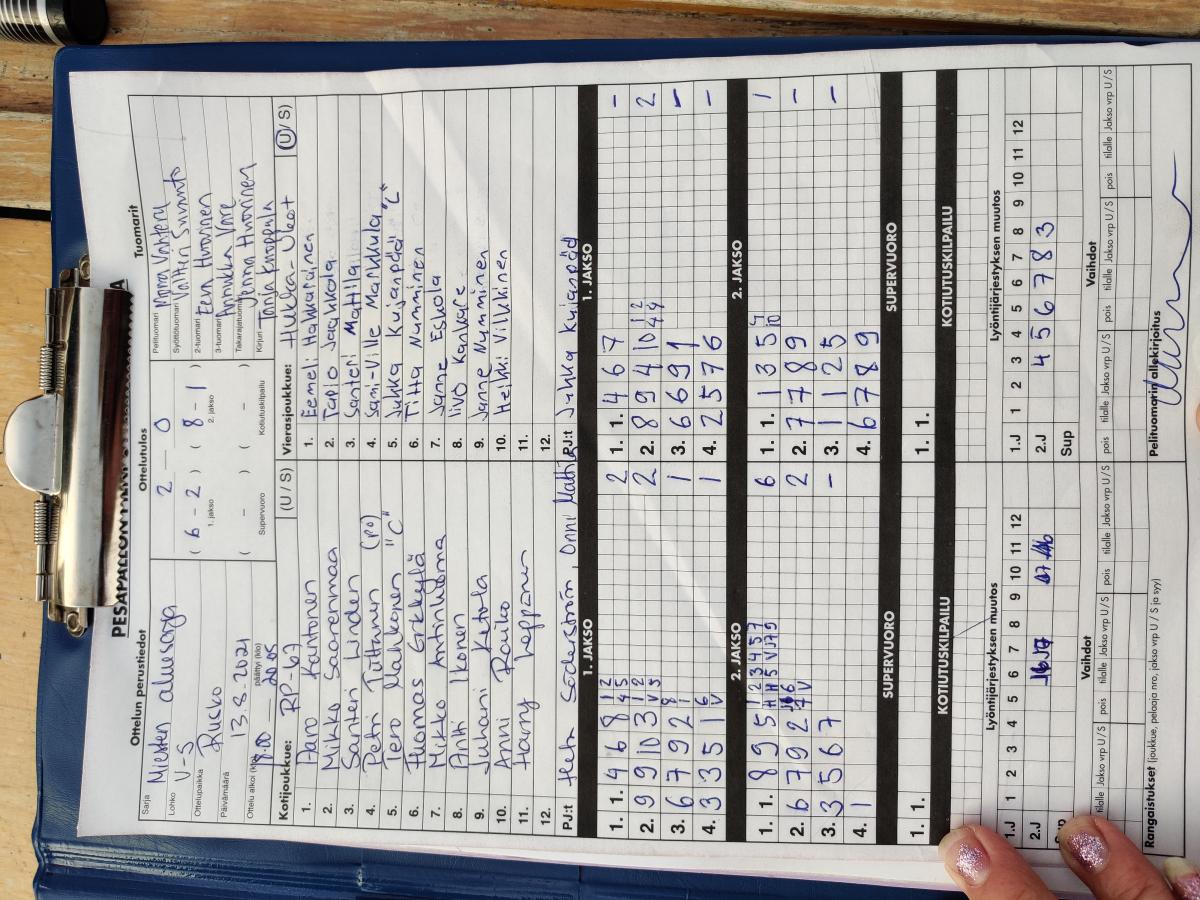 PESÄPALLON
Ottelun perustiedot
Sarja Miesten aluesarja
Lohko V-S
Ottelupaikka Rusko
Päivämäärä 13.8.2021
Ottelu alkoi (klo) päättyi (klo) 20.05
Ottelutulos
2 – 0
( 6 – 2 ) ( 8 – 1 )
1. jakso 2. jakso
( – ) ( – )
Supervuoro Kotiutuskilpailu
Tuomarit
Pelituomari
Syöttötuomari Valtteri Suvanto
2-tuomari Eero Huovinen
3-tuomari Annukka Vare
Takarajatuomari Jonna Huovinen
Kirjuri Tanja Knoppala
Kotijoukkue: RP-67 (U / S)
1. Kantonen
2. Mikko Saarenmaa
3. Santeri Linden
4. Petri Tuttanun (PO)
5. Tero Mahkonen "C"
6. Tuomas Erkkylä
7. Mikko Antinluoma
8. Antti Ikonen
9. Juhani Ketola
10. Anni Rauko
11. Harry Leppänen
12.
PJ:t Heta Söderström, Onni Mattila
Vierasjoukkue: Hukka-Ukot (U / S)
1. Eemeli Hakkarainen
2. Tapio Jaakkola
3. Santeri Mattila
4. Sami-Ville Mannkula
5. Jukka Kujanpää "C"
6. Titta Nymminen
7. Janne Eskola
8. Iivo Kankare
9. Janne Nymminen
10. Heikki Vilkkinen
11.
12.
PJ:t Jukka Kujanpää
1. JAKSO
1. 1. 4 6 8 2
2. 9 9 10 3 2
3. 6 7 9 2 1
4. 3 3 5 1 1
1. JAKSO
1. 1. 4 6 7 –
2. 8 9 4 10 2
3. 6 6 9 1 –
4. 2 5 7 6 –
2. JAKSO
1. 1. 8 9 5 6
2. 6 7 9 2 2
3. 3 5 6 7 –
4. 1
2. JAKSO
1. 1. 1 3 5 1
2. 7 7 8 9 –
3. 1 1 2 5 –
4. 6 7 8 9
SUPERVUORO
1. 1.
SUPERVUORO
1. 1.
KOTIUTUSKILPAILU
KOTIUTUSKILPAILU
Lyöntijärjestyksen muutos
1.J 1 2 3 4 5 6 7 8 9 10 11 12
2.J
Lyöntijärjestyksen muutos
1.J 1 2 3 4 5 6 7 8 9 10 11 12
2.J 4 5 6 7 8 3
Sup
Vaihdot
tilalle Jakso vrp U / S pois tilalle Jakso vrp U / S pois tilalle Jakso vrp U / S
Vaihdot
pois tilalle Jakso vrp U / S pois tilalle Jakso vrp U / S pois tilalle Jakso vrp U / S
Rangaistukset (joukkue, pelaaja nro, jakso vrp U / S ja syy)
Pelituomarin allekirjoitus